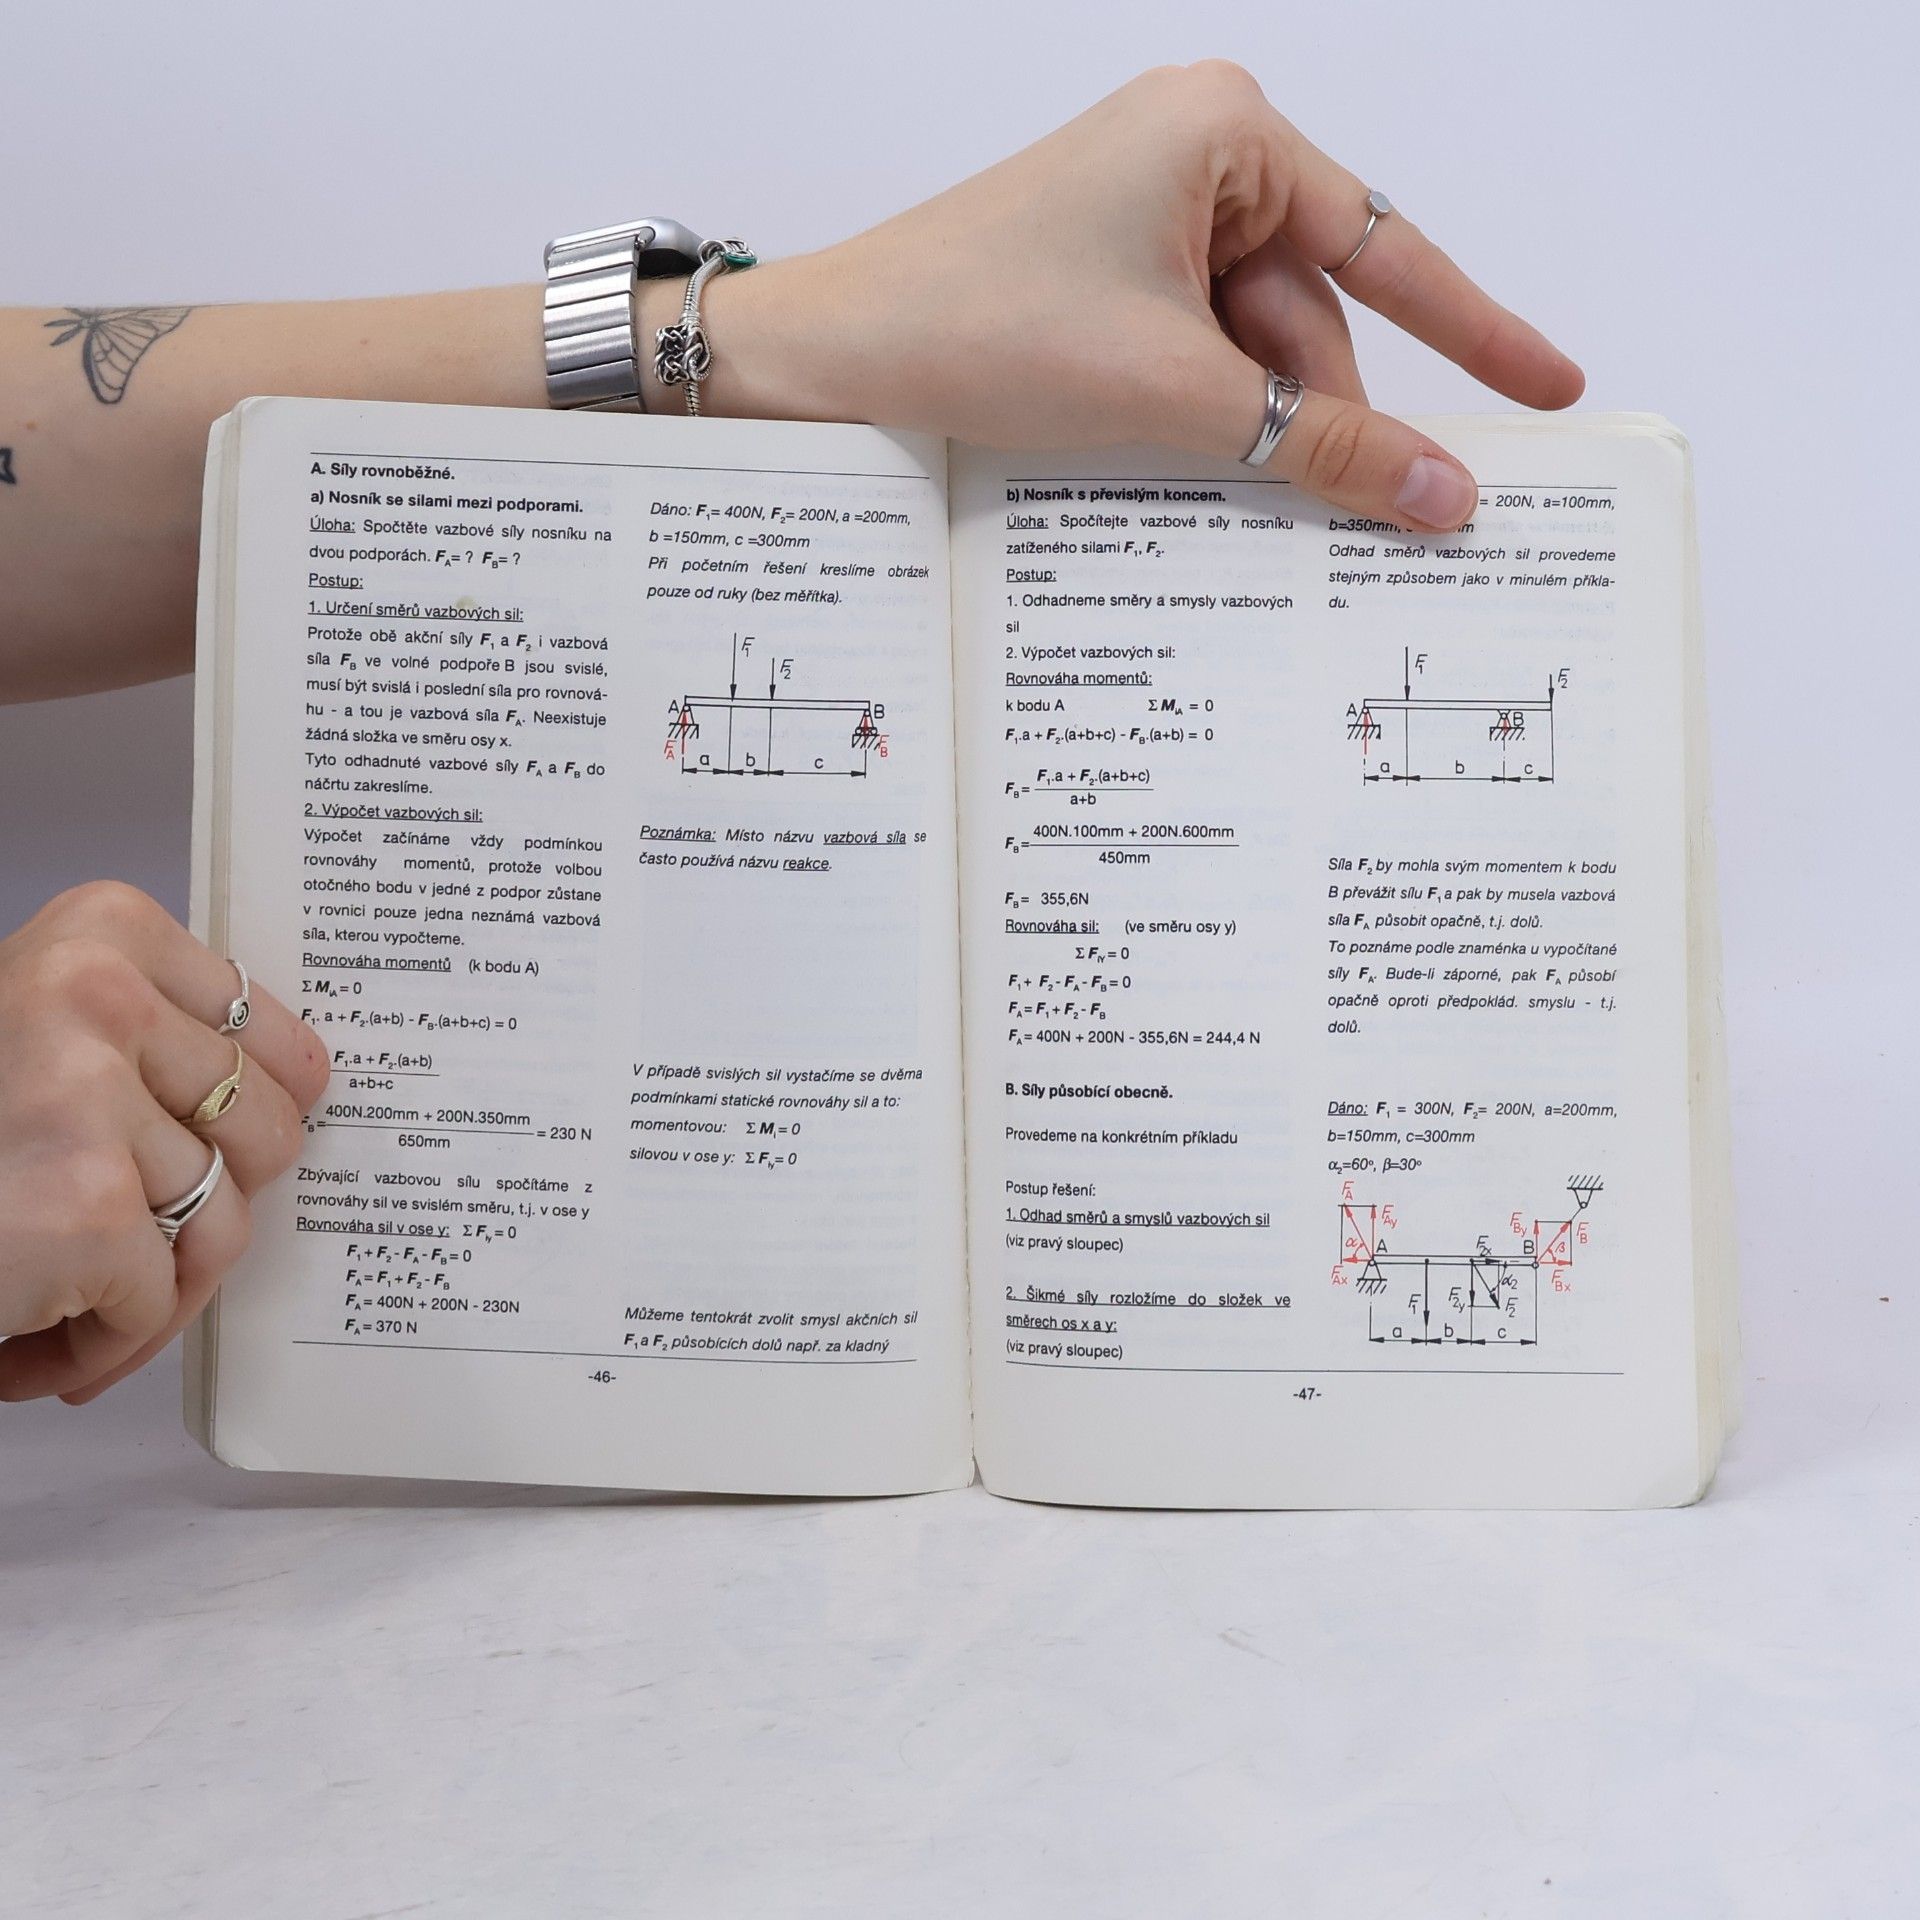 A. Síly rovnoběžné.
a) Nosník se silami mezi podporami.
Úloha: Spočtěte vazbové síly nosníku na
dvou podporách. F_A= ? F_B= ?
Postup:
1. Určení směrů vazbových sil:
Protože obě akční síly F₁ a F₂ i vazbová
síla F_B ve volné podpoře B jsou svislé,
musí být svislá i poslední síla pro rovnová-
hu - a tou je vazbová síla F_A. Neexistuje
žádná složka ve směru osy x.
Tyto odhadnuté vazbové síly F_A a F_B do
náčrtu zakreslíme.
2. Výpočet vazbových sil:
Výpočet začínáme vždy podmínkou
rovnováhy momentů, protože volbou
otočného bodu v jedné z podpor zůstane
v rovnici pouze jedna neznámá vazbová
síla, kterou vypočteme.
Rovnováha momentů (k bodu A)
Σ M_iA = 0
F₁. a + F₂.(a+b) - F_B.(a+b+c) = 0
F₁.a + F₂.(a+b)
a+b+c
F_B= 400N.200mm + 200N.350mm
650mm
= 230 N
Zbývající vazbovou sílu spočítáme z
rovnováhy sil ve svislém směru, t.j. v ose y
Rovnováha sil v ose y: Σ F_iy = 0
F₁ + F₂ - F_A - F_B = 0
F_A = F₁ + F₂ - F_B
F_A = 400N + 200N - 230N
F_A = 370 N
Dáno: F₁= 400N, F₂= 200N, a =200mm,
b =150mm, c =300mm
Při početním řešení kreslíme obrázek
pouze od ruky (bez měřítka).
F₁
F₂
A
B
F_A
F_B
a b c
Poznámka: Místo názvu vazbová síla se
často používá názvu reakce.
V případě svislých sil vystačíme se dvěma
podmínkami statické rovnováhy sil a to:
momentovou: Σ M_i = 0
silovou v ose y: Σ F_iy = 0
Můžeme tentokrát zvolit smysl akčních sil
F₁ a F₂ působících dolů např. za kladný
-46-
b) Nosník s převislým koncem.
Úloha: Spočítejte vazbové síly nosníku
zatíženého silami F₁, F₂.
Postup:
1. Odhadneme směry a smysly vazbových
sil
2. Výpočet vazbových sil:
Rovnováha momentů:
k bodu A Σ M_iA = 0
F₁.a + F₂.(a+b+c) - F_B.(a+b) = 0
F_B = F₁.a + F₂.(a+b+c)
a+b
F_B = 400N.100mm + 200N.600mm
450mm
F_B = 355,6N
Rovnováha sil: (ve směru osy y)
Σ F_iY = 0
F₁ + F₂ - F_A - F_B = 0
F_A = F₁ + F₂ - F_B
F_A = 400N + 200N - 355,6N = 244,4 N
B. Síly působící obecně.
Provedeme na konkrétním příkladu
Postup řešení:
1. Odhad směrů a smyslů vazbových sil
(viz pravý sloupec)
2. Šikmé síly rozložíme do složek ve
směrech os x a y:
(viz pravý sloupec)
= 200N, a=100mm,
b=350mm,
Odhad směrů vazbových sil provedeme
stejným způsobem jako v minulém příkla-
du.
F₁
F₂
A
B
a b c
Síla F₂ by mohla svým momentem k bodu
B převážit sílu F₁ a pak by musela vazbová
síla F_A působit opačně, t.j. dolů.
To poznáme podle znaménka u vypočítané
síly F_A. Bude-li záporné, pak F_A působí
opačně oproti předpoklád. smyslu - t.j.
dolů.
Dáno: F₁ = 300N, F₂= 200N, a=200mm,
b=150mm, c=300mm
α₂=60º, β=30º
F_A
F_Ay
α
A
F_Ax
F₁
F_2x
F_2y
α₂
F₂
F_By
B
F_B
β
F_Bx
a b c
-47-